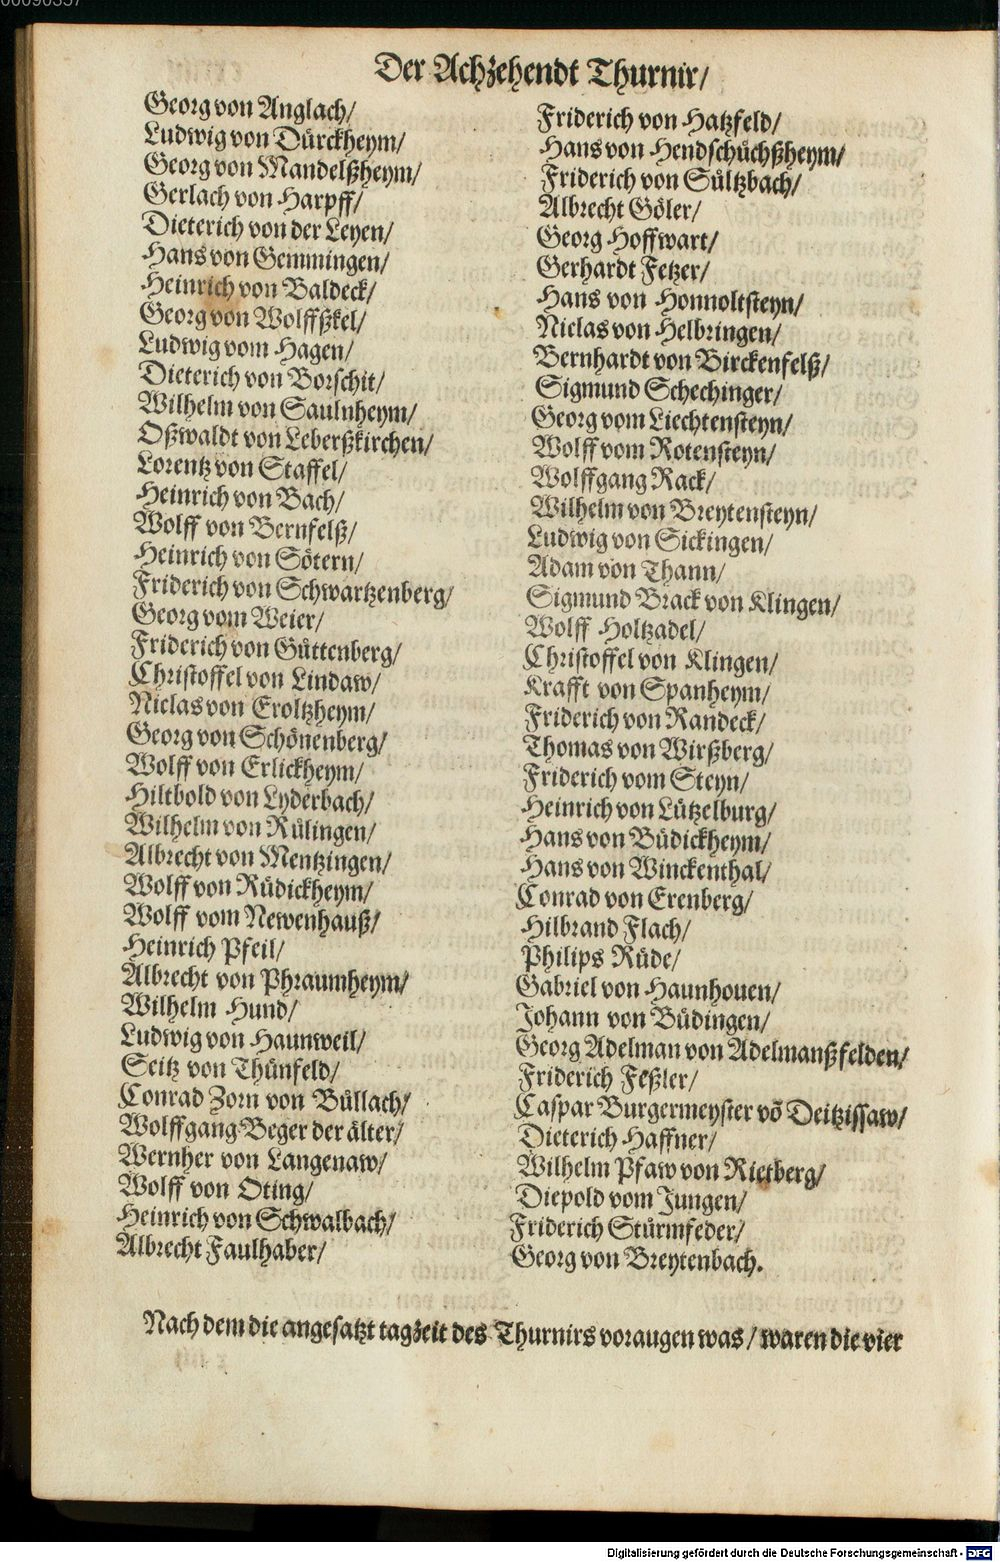 00090357
Der Achzehendt Thurnir/
Georg von Anglach/
Ludwig von Dürckheym/
Georg von Mandelßheym/
Gerlach von Harpff/
Dieterich von der Leyen/
Hans von Gemmingen/
Heinrich von Baldeck/
Georg von Wolffßkel/
Ludwig vom Hagen/
Dieterich von Borschit/
Wilhelm von Saulnheym/
Oßwaldt von Leberßkirchen/
Lorentz von Staffel/
Heinrich von Bach/
Wolff von Bernfelß/
Heinrich von Sötern/
Friderich von Schwartzenberg/
Georg vom Weier/
Friderich von Güttenberg/
Christoffel von Lindaw/
Niclas von Eroltzheym/
Georg von Schönenberg/
Wolff von Erlickheym/
Hiltbold von Lyderbach/
Wilhelm von Rülingen/
Albrecht von Mentzingen/
Wolff von Rüdickheym/
Wolff vom Newenhauß/
Heinrich Pfeil/
Albrecht von Phraumheym/
Wilhelm Hund/
Ludwig von Haunweil/
Seitz von Thünfeld/
Conrad Zorn von Büllach/
Wolffgang Beger der älter/
Wernher von Langenaw/
Wolff von Oting/
Heinrich von Schwalbach/
Albrecht Faulhaber/
Friderich von Hatzfeld/
Hans von Hendschüchßheym/
Friderich von Sültzbach/
Albrecht Göler/
Georg Hoffwart/
Gerhardt Fetzer/
Hans von Honnoltsteyn/
Niclas von Helbringen/
Bernhardt von Birckenfelß/
Sigmund Schechinger/
Georg vom Liechtensteyn/
Wolff vom Rotensteyn/
Wolffgang Rack/
Wilhelm von Breytensteyn/
Ludwig von Sickingen/
Adam von Thann/
Sigmund Brack von Klingen/
Wolff Holtzadel/
Christoffel von Klingen/
Krafft von Spanheym/
Friderich von Randeck/
Thomas von Wirßberg/
Friderich vom Steyn/
Heinrich von Lützelburg/
Hans von Büdickheym/
Hans von Winckenthal/
Conrad von Erenberg/
Hilbrand Flach/
Philips Rüde/
Gabriel von Haunhouen/
Johann von Büdingen/
Georg Adelman von Adelmanßfelden/
Friderich Feßler/
Caspar Burgermeyster võ Deitzissaw/
Dieterich Haffner/
Wilhelm Pfaw von Rietberg/
Diepold vom Jungen/
Friderich Stürmfeder/
Georg von Breytenbach.
Nach dem die angesatzt tagzeit des Thurnirs voraugen was/ waren die vier
Digitalisierung gefördert durch die Deutsche Forschungsgemeinschaft - DFG